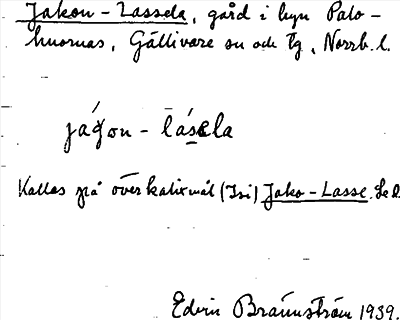 Jakon-Lassela, gård i byn Palo-
huornas, Gällivare sn och tg, Norrb. l.
jáǥon - lásela
Kallas på överkalixmål (Isi) Jako-Lasse. Se d.
Edvin Brännström 1939.